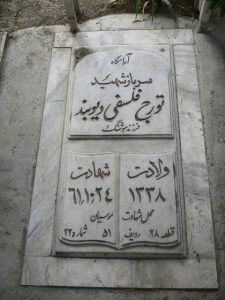 آرامگاه
سرباز شهید
تورج فلسفی دیوبند
فرزند هوشنگ
ولادت
۱۳۳۸
محل شهادت
قطعه ۲۸ ردیف
شهادت
۶۱/۱۰/۲۴
موسیان
۵۱ شماره ۲۲